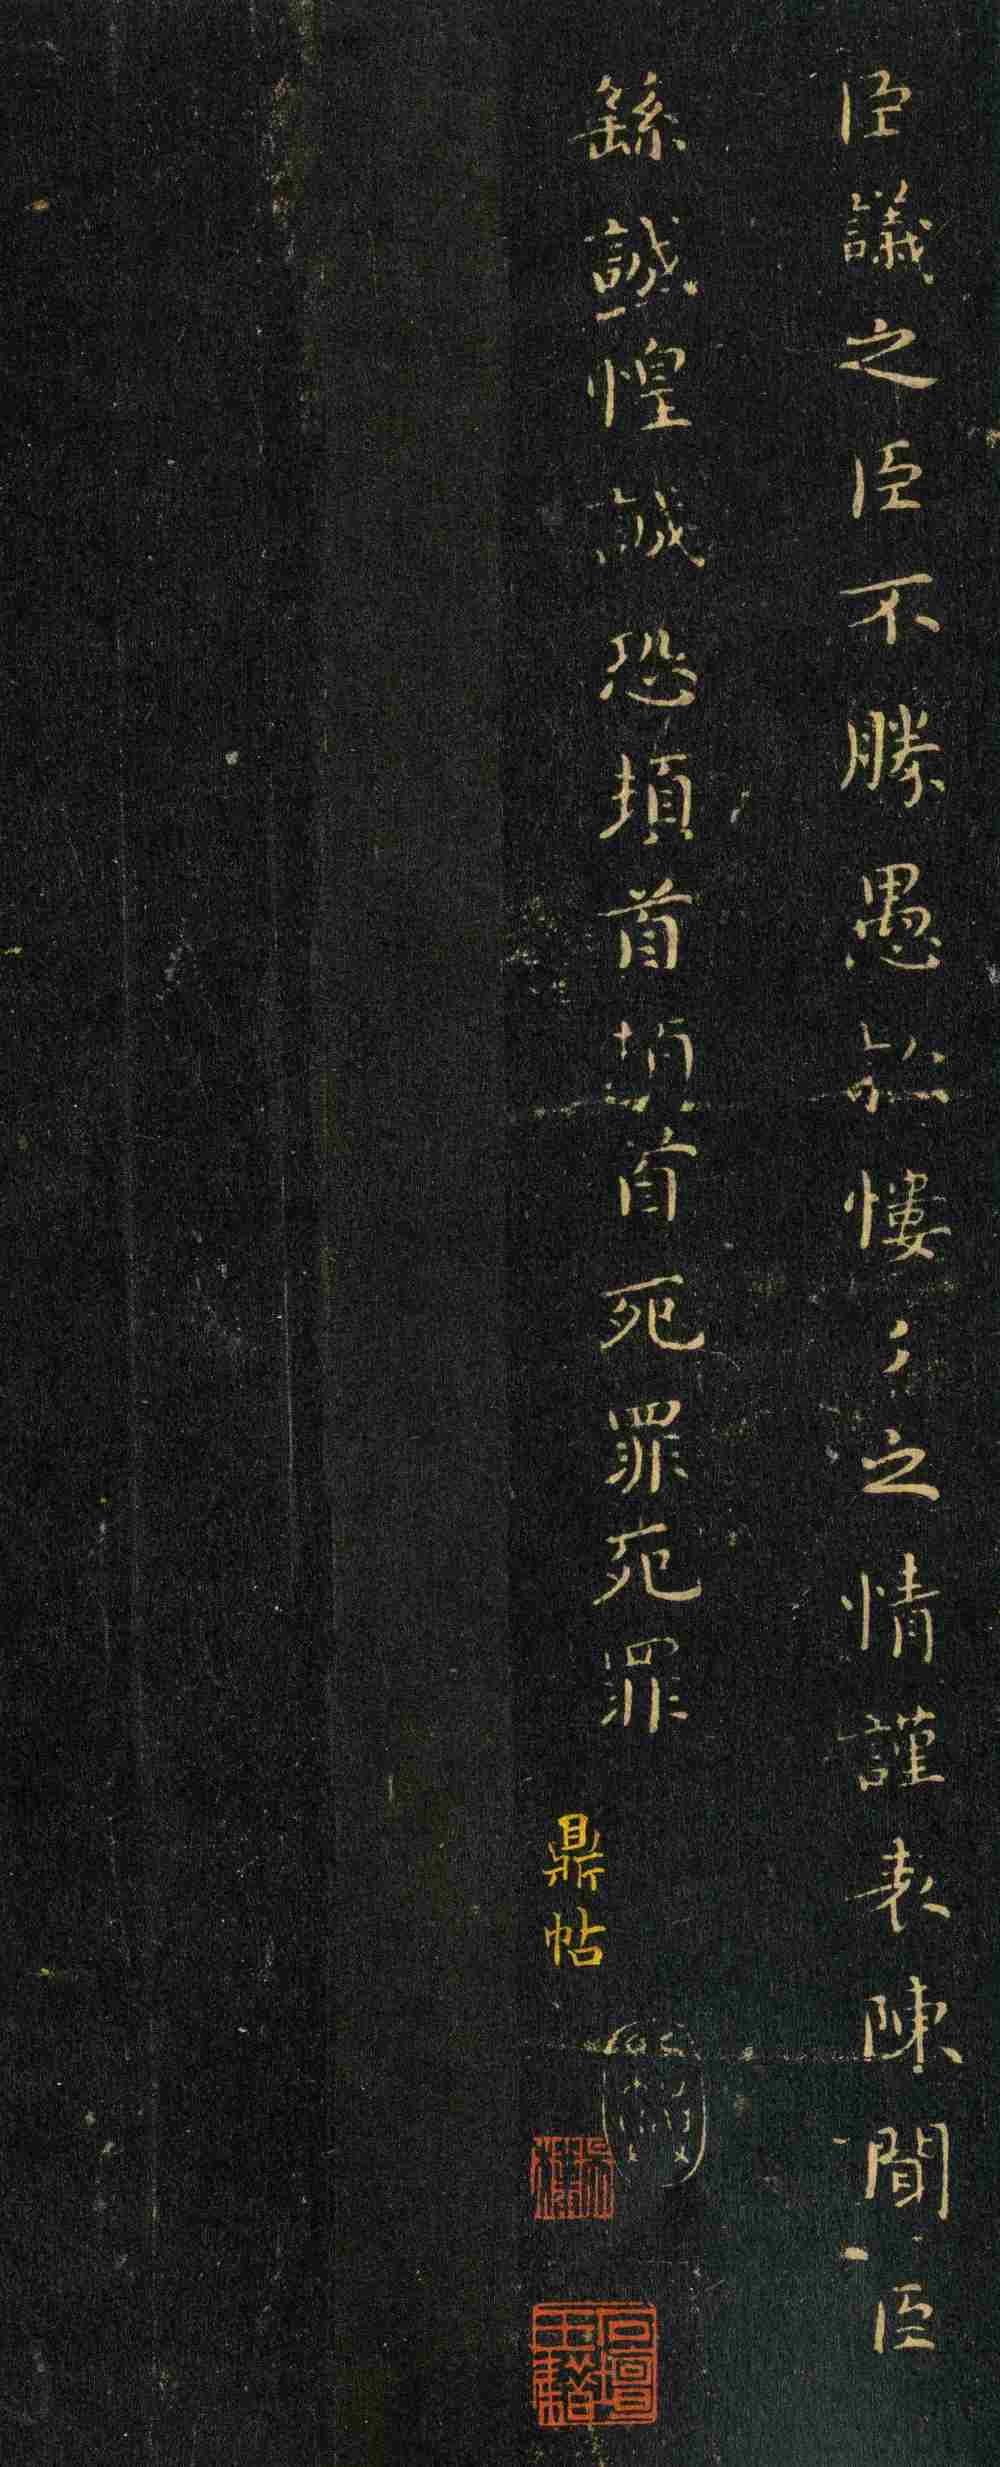 臣議之臣不勝愚款慺〻之情謹表陳聞臣
繇誠惶誠恐頓首頓首死罪死罪
鼎帖
石壇
王籍